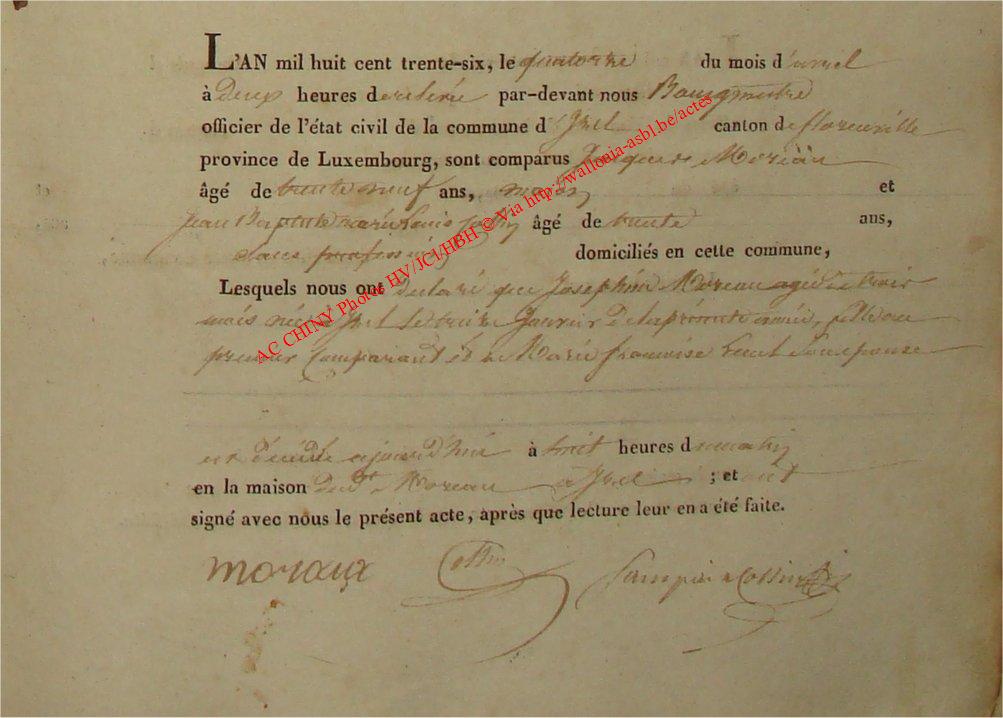 L'AN mil huit cent trente-six, le quatorze du mois d'avril
à deux heures de relevée par-devant nous Bourgmestre
officier de l'état civil de la commune d'Izel canton de florenville
province de Luxembourg, sont comparus Jacques Moreau
âgé de trente neuf ans, maçon et
Jean Baptiste marie Louis Collin âgé de trente ans,
sans profession domiciliés en cette commune,
Lesquels nous ont declaré que Josephine Moreau agée de trois
mois née à Izel le treize Janvier de la présente année, fille du
premier Comparant et de Marie françoise son epouse
est décédée aujourd'hui à huit heures du matin
en la maison dudt Moreau à Izel ; et ont
signé avec nous le présent acte, après que lecture leur en a été faite.
moraux Collin Collin
AC CHINY Photos HV/JCI/HBH © Via http://wallonia-asbl.be/actes